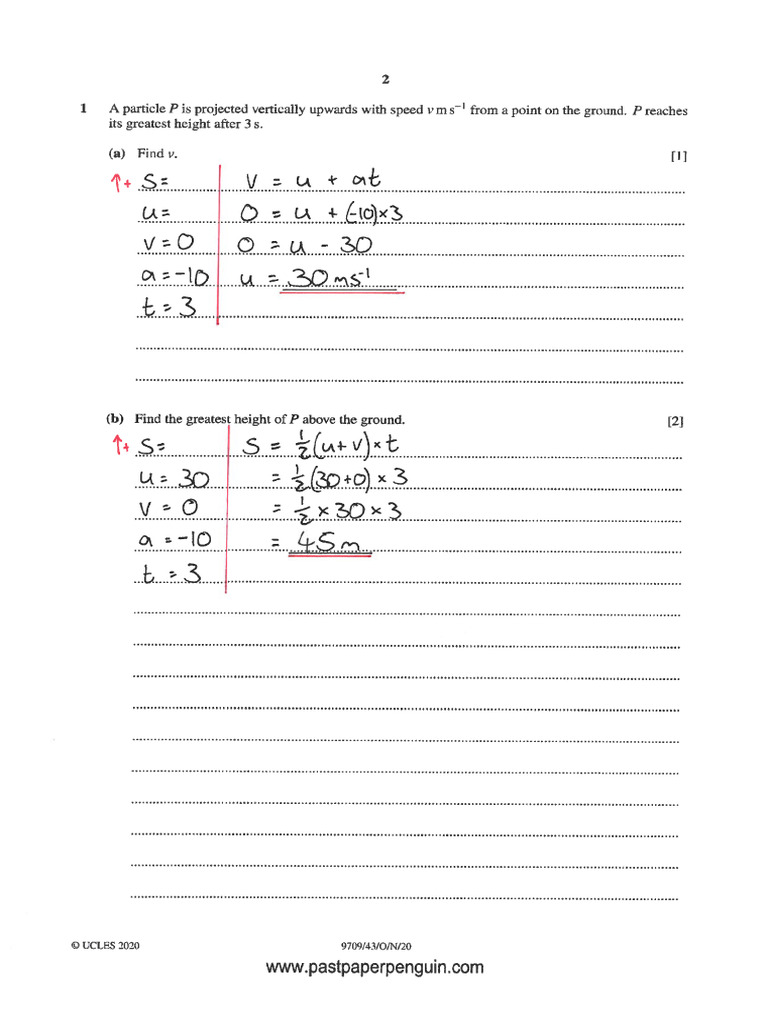 2
1 A particle P is projected vertically upwards with speed v m s⁻¹ from a point on the ground. P reaches
its greatest height after 3 s.
(a) Find v. [1]
↑+ S= V = u + at
u= 0 = u + (-10)×3
v=0 0 = u - 30
a=-10 u = 30ms⁻¹
t=3
(b) Find the greatest height of P above the ground. [2]
↑+ S= S = ½(u+v)×t
u=30 = ½(30+0)×3
v=0 = ½×30×3
a=-10 = 45m
t=3
© UCLES 2020 9709/43/O/N/20
www.pastpaperpenguin.com